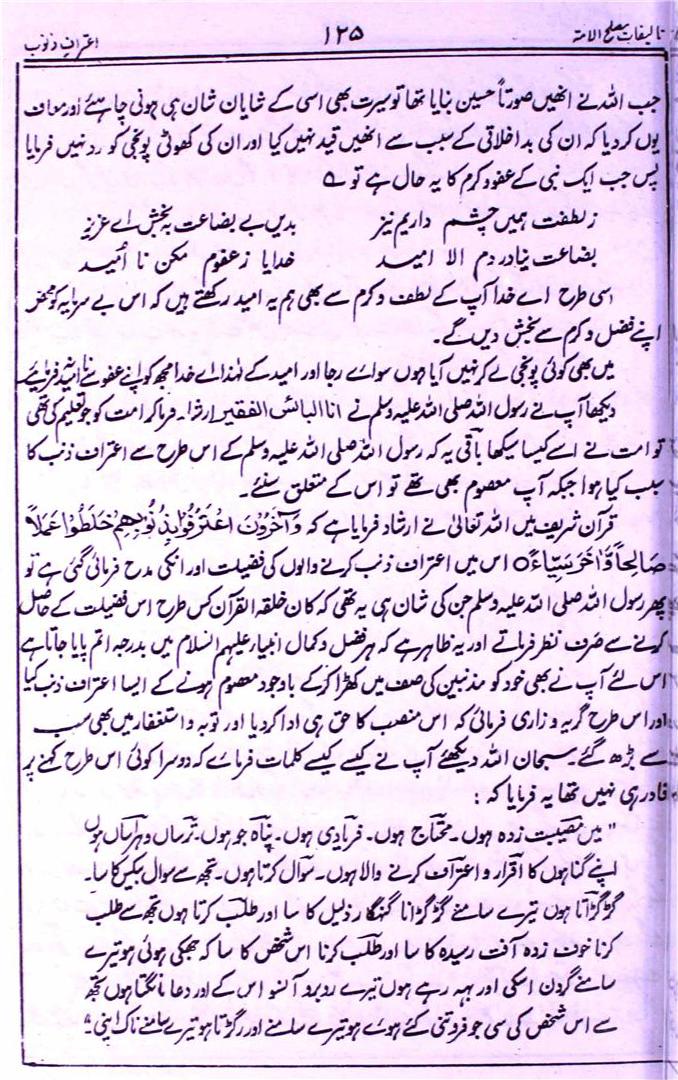 تالیفات مصلح الامۃ ۱۲۵ اعترافِ ذنوب
جب اللہ نے انھیں صورتاً حسین بنایا تھا تو سیرت بھی اسی کے شایان شان ہی ہونی چاہئے اور معاف
یوں کر دیا کہ ان کی بداخلاقی کے سبب سے انھیں قید نہیں کیا اور ان کی کھوٹی پونجی کو رد نہیں فرمایا
پس جب ایک نبی کے عفو و کرم کا یہ حال ہے تو ؎
زلطفت ہمیں چشم داریم نیز بدیں بے بضاعت بہ بخش اے عزیز
بضاعت نیاوردم الا امید خدایا زعفوم مکن نا امید
اسی طرح اے خدا آپ کے لطف و کرم سے بھی ہم یہ امید رکھتے ہیں کہ اس بے سرمایہ کو محض
اپنے فضل و کرم سے بخش دیں گے۔
میں بھی کوئی پونجی لے کر نہیں آیا ہوں سوائے رجا اور امید کے لہٰذا اے خدا مجھ کو اپنے عفو سے نا امید نہ فرمائیے
دیکھا آپ نے رسول اللہ صلی اللہ علیہ وسلم نے انا البائس الفقیر ارشاد فرما کر امت کو جو تعلیم کی تھی
تو امت نے اسے کیسا سیکھا باقی یہ کہ رسول اللہ صلی اللہ علیہ وسلم کے اس طرح سے اعتراف ذنب کا
سبب کیا ہوا جبکہ آپ معصوم بھی تھے تو اس کے متعلق سنئے۔
قرآن شریف میں اللہ تعالیٰ نے ارشاد فرمایا ہے کہ وَآخَرُوْنَ اعْتَرَفُوْا بِذُنُوْبِهِمْ خَلَطُوْا عَمَلاً
صَالِحاً وَّاٰخَرَ سَيِّئاًہ اس میں اعتراف ذنب کرنے والوں کی فضیلت اور انکی مدح فرمائی گئی ہے تو
پھر رسول اللہ صلی اللہ علیہ وسلم جن کی شان ہی یہ تھی کہ کان خلقہ القرآن کس طرح اس فضیلت کے حاصل
کرنے سے صَرف نظر فرماتے اور یہ ظاہر ہے کہ ہر فضل و کمال انبیاء علیہم السلام میں بدرجہ اتم پایا جاتا ہے
اس لئے آپ نے بھی خود کو مذنبین کی صف میں کھڑا کر کے باوجود معصوم ہونے کے ایسا اعتراف ذنب کیا
اور اس طرح گریہ و زاری فرمائی کہ اس منصب کا حق ہی ادا کر دیا اور توبہ و استغفار میں بھی سب
سے بڑھ گئے۔ سبحان اللہ دیکھئے آپ نے کیسے کیسے کلمات فرمائے کہ دوسرا کوئی اس طرح کہنے پر
قادر ہی نہیں تھا یہ فرمایا کہ :
" میں مصیبت زدہ ہوں۔ محتاج ہوں۔ فریادی ہوں۔ پناہ جو ہوں۔ ترساں و ہراساں ہوں
اپنے گناہوں کا اقرار و اعتراف کرنے والا ہوں۔ سوال کرتا ہوں۔ تجھ سے سوال بیکس کا سا۔
گڑگڑاتا ہوں تیرے سامنے گڑگڑانا گنہگار ذلیل کا سا اور طلب کرتا ہوں تجھ سے طلب
کرنا خوف زدہ آفت رسیدہ کا سا اور طلب کرنا اس شخص کا سا کہ جھکی ہوئی ہو تیرے
سامنے گردن اسکی اور بہہ رہے ہوں تیرے روبرو آنسو اس کے اور دعا مانگتا ہوں تجھ
سے اس شخص کی سی جو فروتنی کئے ہوئے ہو تیرے سامنے اور رگڑتا ہو تیرے سامنے ناک اپنی۔"